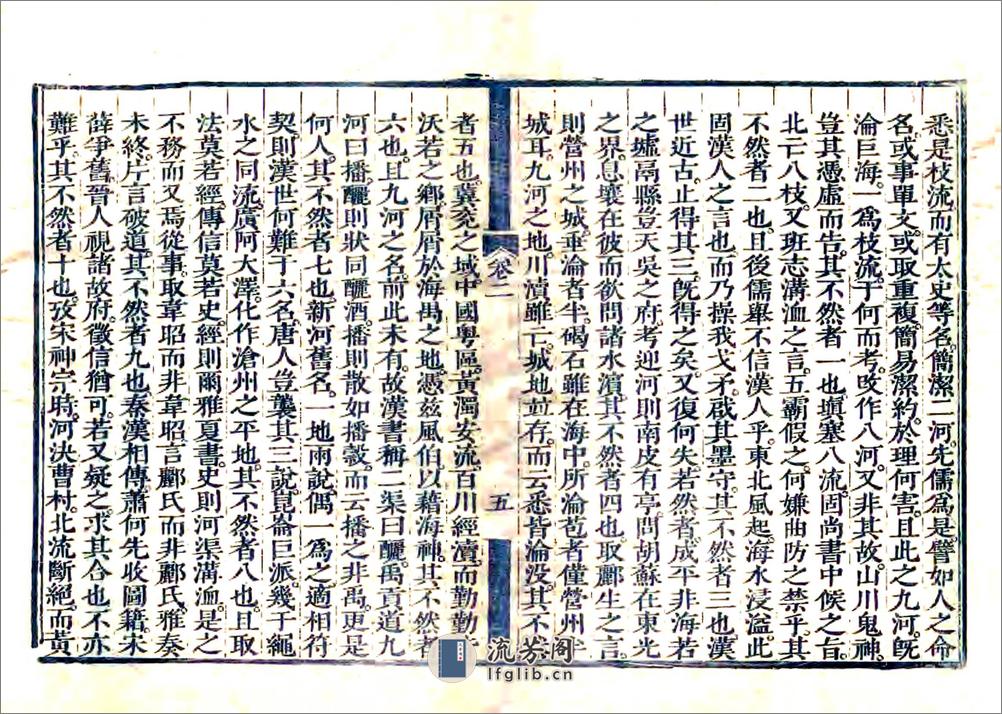 悉是枝流而有太史等名簡潔二河先儒爲是譬如人之命
名或事單文或取重複簡易潔約於理何害且此之九河旣
淪巨海一爲枝流于何而考改作八河又非其故山川鬼神
豈其憑虛而告其不然者一也塡塞八流固尚書中候之言
北二八枝又班志溝洫之言五霸假之何嫌曲防之禁乎其
不然者二也且後儒舉不信漢人乎東北風起海水浸溢此
固漢人之言也而乃操我戈矛攻其墨守其不然者三也漢
世近古止得其三旣得之矣又復何失若然者成平非海若
之墟鬲縣豈天吳之府考迎河則南皮有亭問胡蘇在東光
之界息壤在彼而欲問諸水濱其不然者四也取酈生之言
則營州之城垂淪者半碣石雖在海中所淪苞者僅營州半
城耳九河之地川瀆雖亡城地並存而云悉皆淪没其不然
卷二
五
者五也冀兖之域中國粤區黃濁安流百川經瀆而勤勤
沃若之鄉屑屑於海禺之地憑兹風伯以藉海神其不然者
六也且九河之名前此未有故漢書稱二渠曰釃禹貢道九
河曰播釃則狀同釃酒播則散如播穀而云播之非禹更是
何人其不然者七也新河舊名一地兩說偶一爲之適相符
契則漢世何難于六名唐人豈襲其三說崑崙巨派幾于繩
水之同流廣阿大澤化作滄州之平地其不然者八也且取
法莫若經傳信莫若史經則爾雅夏書史則河渠溝洫是之
不務而又焉從事取韋昭而非韋昭言酈氏而非酈氏雅奏
未終片言破道其不然者九也秦漢相傳蕭何先收圖籍宋
薛爭舊晉人視諸故府徵信猶可若又疑之求其合也不亦
難乎其不然者十也攷宋神宗時河決曹村北流斷絕而黃
流芳阁
lfglib.cn